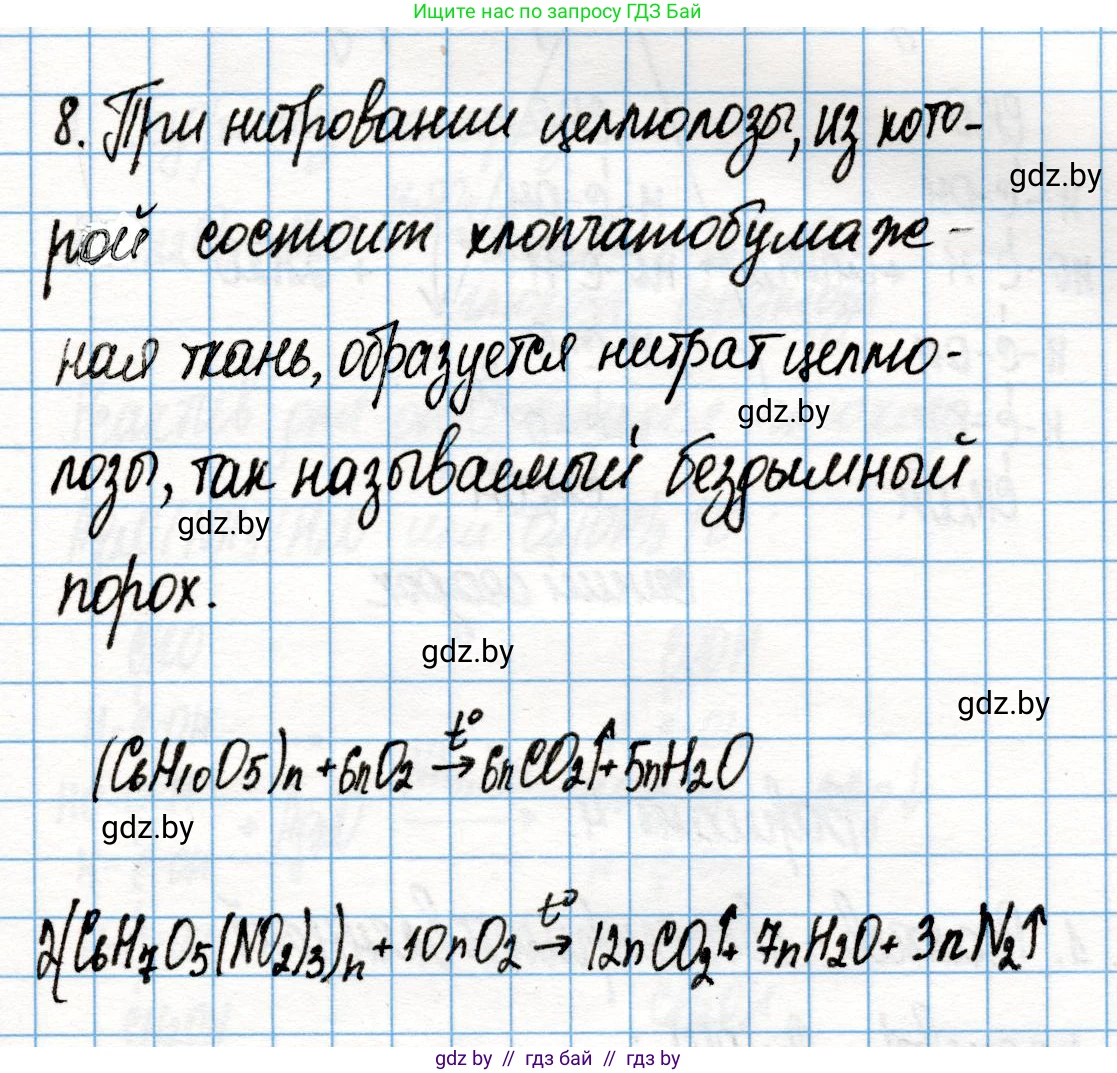 Ищите нас по запросу ГДЗ Бай
8. При нитровании целлюлозы, из кото-
gdz.by
рой состоит хлопчатобумаж-
ная ткань, образуется нитрат целлю-
gdz.by
лозы, так называемый бездымный
gdz.by
порох.
gdz.by
gdz.by
(C₆H₁₀O₅)n + 6nO₂ t°→ 6nCO₂↑ + 5nH₂O
gdz.by
2(C₆H₇O₅(NO₂)₃)n + 10nO₂ t°→ 12nCO₂↑ + 7nH₂O + 3nN₂↑
gdz by // гдз бай // gdz by